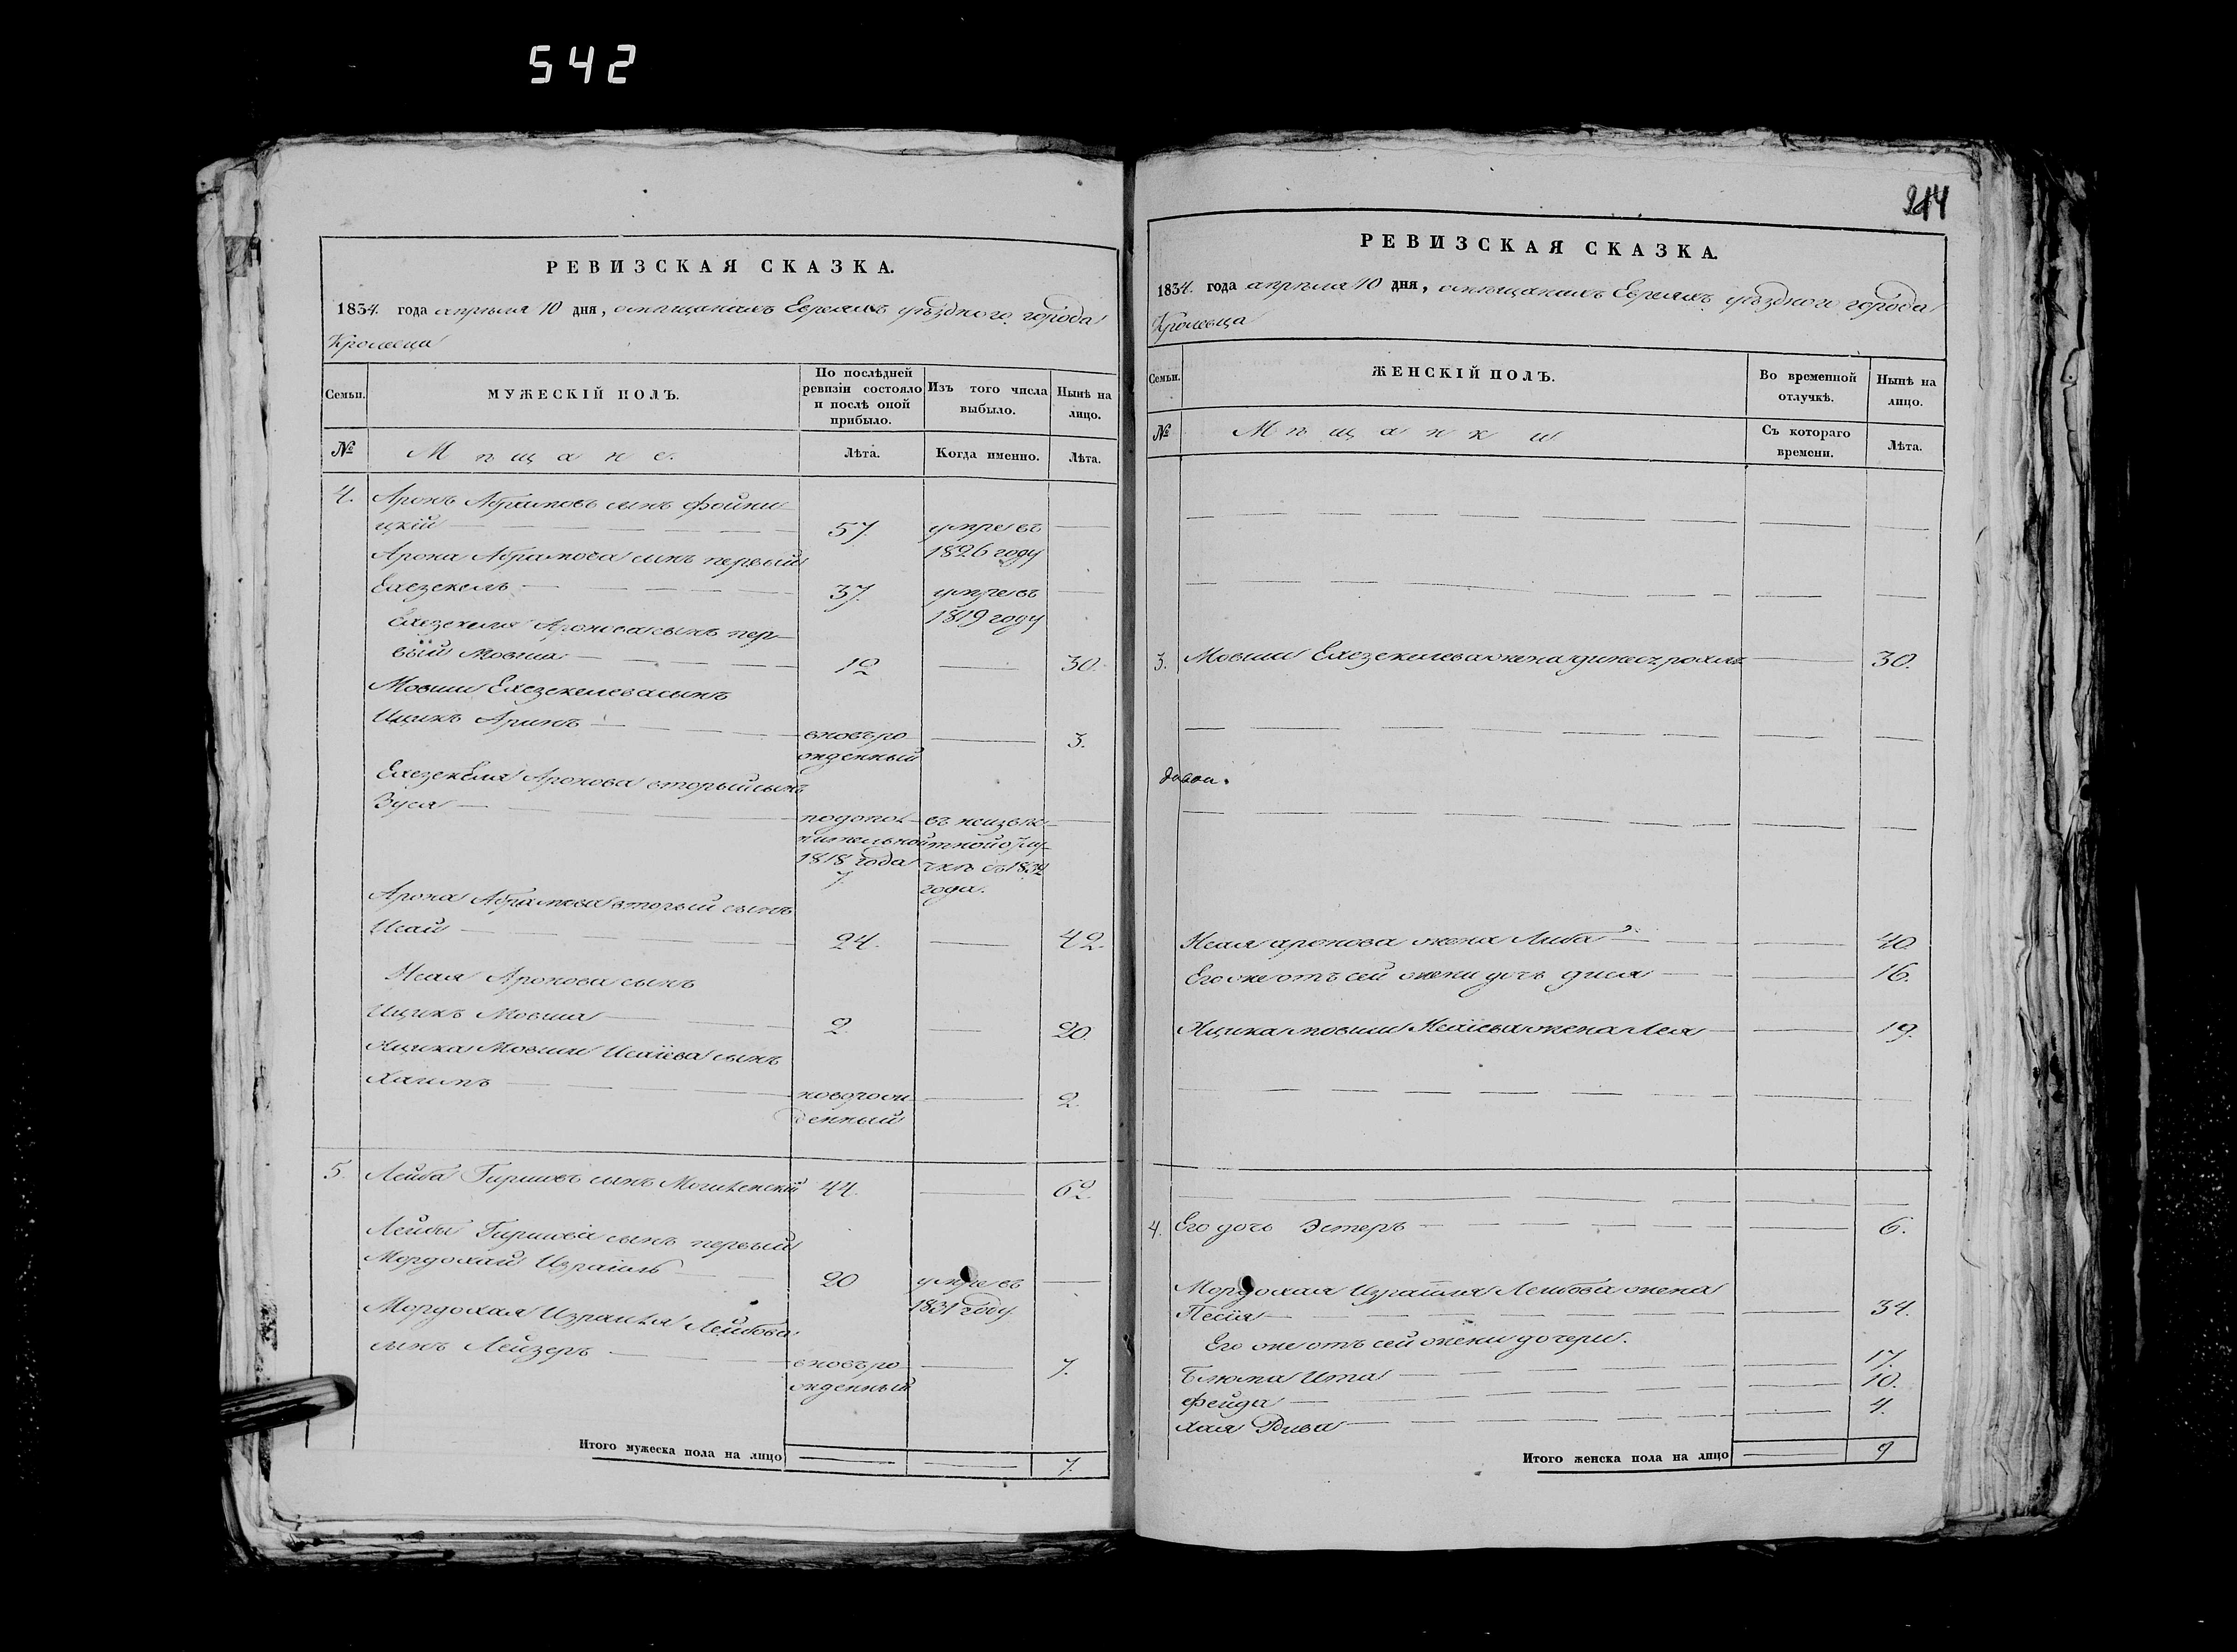 542
РЕВИЗСКАЯ СКАЗКА.
1834. года апрѣля 10 дня, о мѣщанахъ Евреяхъ уѣзднаго города
Кролевца
Семьи.
МУЖЕСКІЙ ПОЛЪ.
По послѣдней ревизіи состояло и послѣ оной прибыло.
Изъ того числа выбыло.
Нынѣ на лицо.
№
Мѣщане.
Лѣта.
Когда именно.
Лѣта.
4. Аронъ Абрамовъ сынъ Фойни-
цкій 57. умре въ
Арона Абрамова сынъ первый 1826 году
Ехезекель 37. умре въ
Ехезекеля Аронова сынъ пер- 1819 году
вый Мовша 12 30.
Мовши Ехезекелева сынъ
Ицикъ Аронъ вновь ро 3.
жденный
Ехезекеля Аронова вторый сынъ
Зуся по допол- въ неизвѣ-
нительной стной отлу-
1818 года чкѣ съ
7. года.
Арона Абрамова вторый сынъ
Исай 24. 42.
Исая Аронова сынъ
Ицикъ Мовша 2. 20.
Ицика Мовши Исаіева сынъ
Хаимъ новорож 2.
денный
5. Лейба Гиршовъ сынъ 44. 62.
Лейбы Гиршова сынъ первый
Мордохай Израиль 20 умре въ
1831 году
Мордохая Израиля Лейбова
сынъ Лейзеръ вновь ро 7.
жденный
Итого мужеска пола на лицо 7.
214
РЕВИЗСКАЯ СКАЗКА.
1834. года апрѣля 10 дня, о мѣщанахъ Евреяхъ уѣзднаго города
Кролевца
Семьи.
ЖЕНСКІЙ ПОЛЪ.
Во временной отлучкѣ.
Нынѣ на лицо.
№
Мѣщанки
Съ котораго времени.
Лѣта.
3. Мовши Ехезекелева жена 30.
Исая Аронова жена Либа 40.
Его же отъ сей жены дочь 16.
Ицика Мовши Исаіева жена Лея 19.
4. Его дочь Эстеръ 6.
Мордохая Израиля Лейбова жена
Песія 34.
Его же отъ сей жены дочери.
Блюма Ита 17.
Фейда 10.
Хая Рива 4.
Итого женска пола на лицо 9